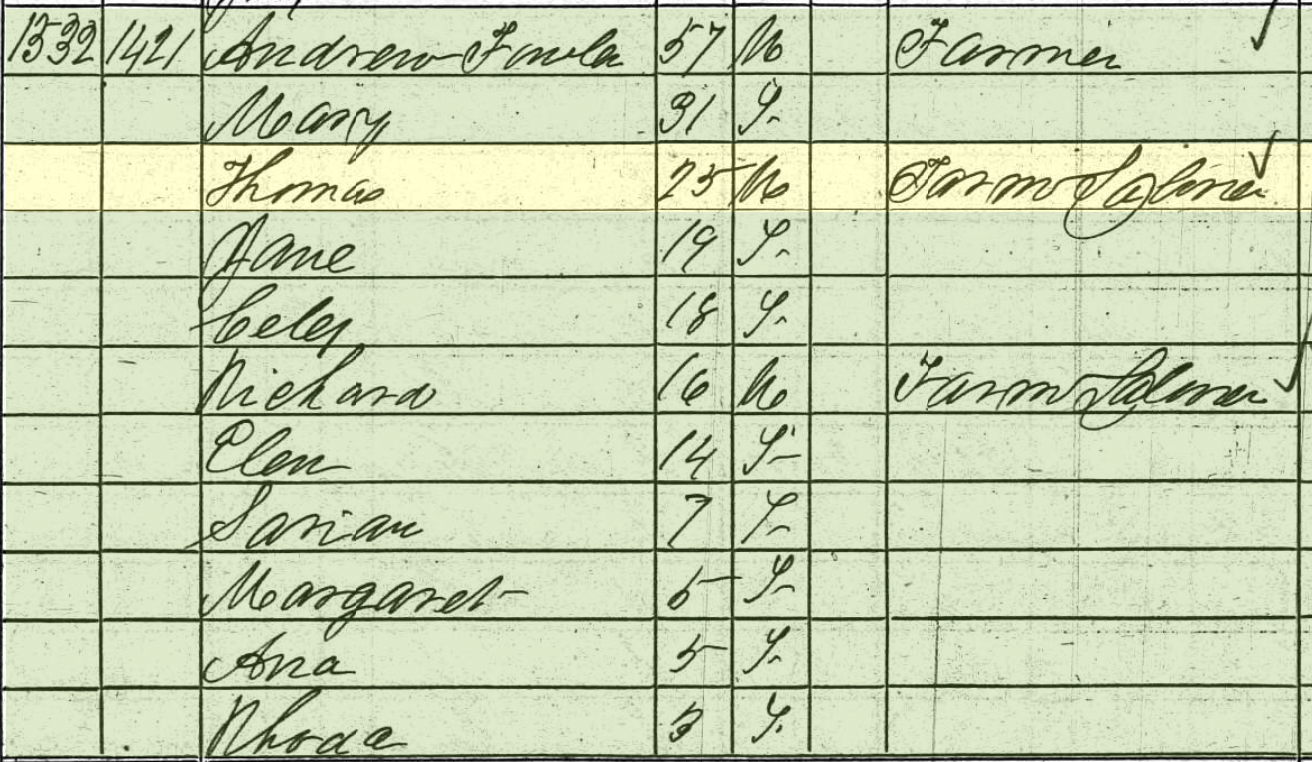 1532 1421 Andrew Fowler 57 M Farmer
Mary 31 F
Thomas 25 M Farm Laborer
Jane 19 F
Cely 18 F
Richard 16 M Farm Laborer
Elen 14 F
Sarian 7 F
Margaret F
Ana 5 F
Rhoda 3 F